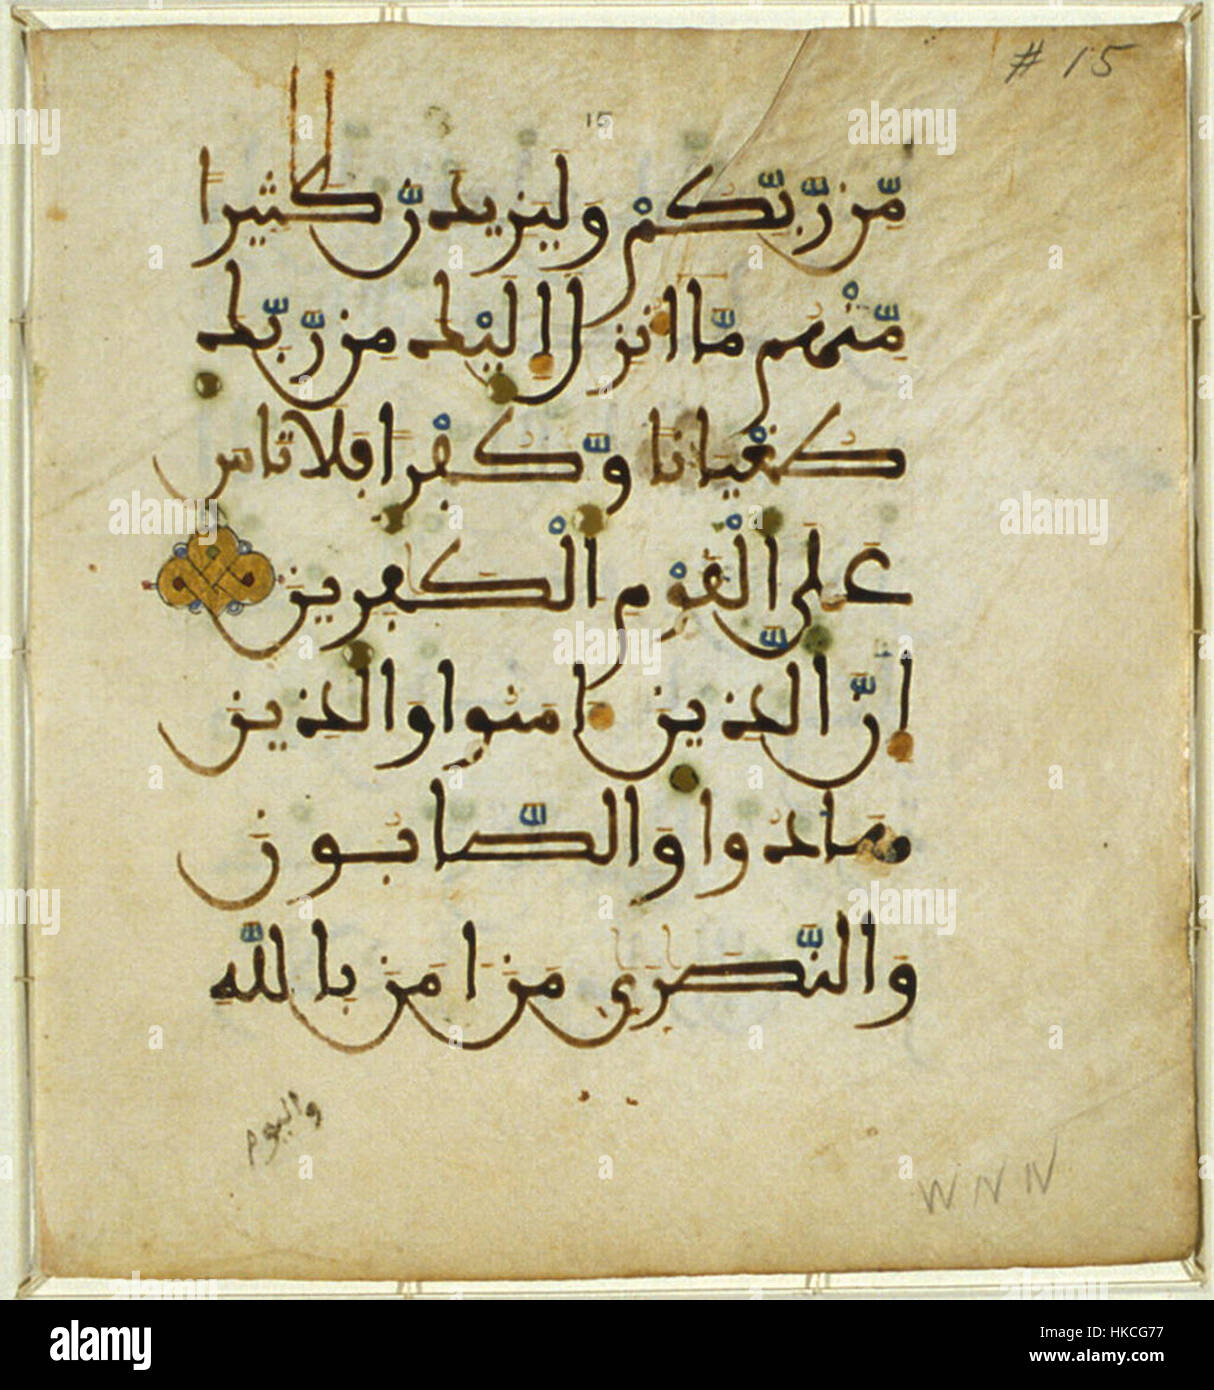 # 15
15
مِّن رَّبِّكُمْ وَلَيَزِيدَنَّ كَثِيرًا
مِّنْهُم مَّا أُنزِلَ إِلَيْكَ مِن رَّبِّكَ
طُغْيَانًا وَّكُفْرًا فَلَا تَأْسَ
عَلَى الْقَوْمِ الْكَفِرِينَ
إِنَّ الَّذِينَ ءَامَنُوا وَالَّذِينَ
هَادُوا وَالصَّابُونَ
وَالنَّصَرَى مَنْ ءَامَنَ بِاللَّهِ
واليوم
W N N
alamy
Image ID: HKCG77
www.alamy.com